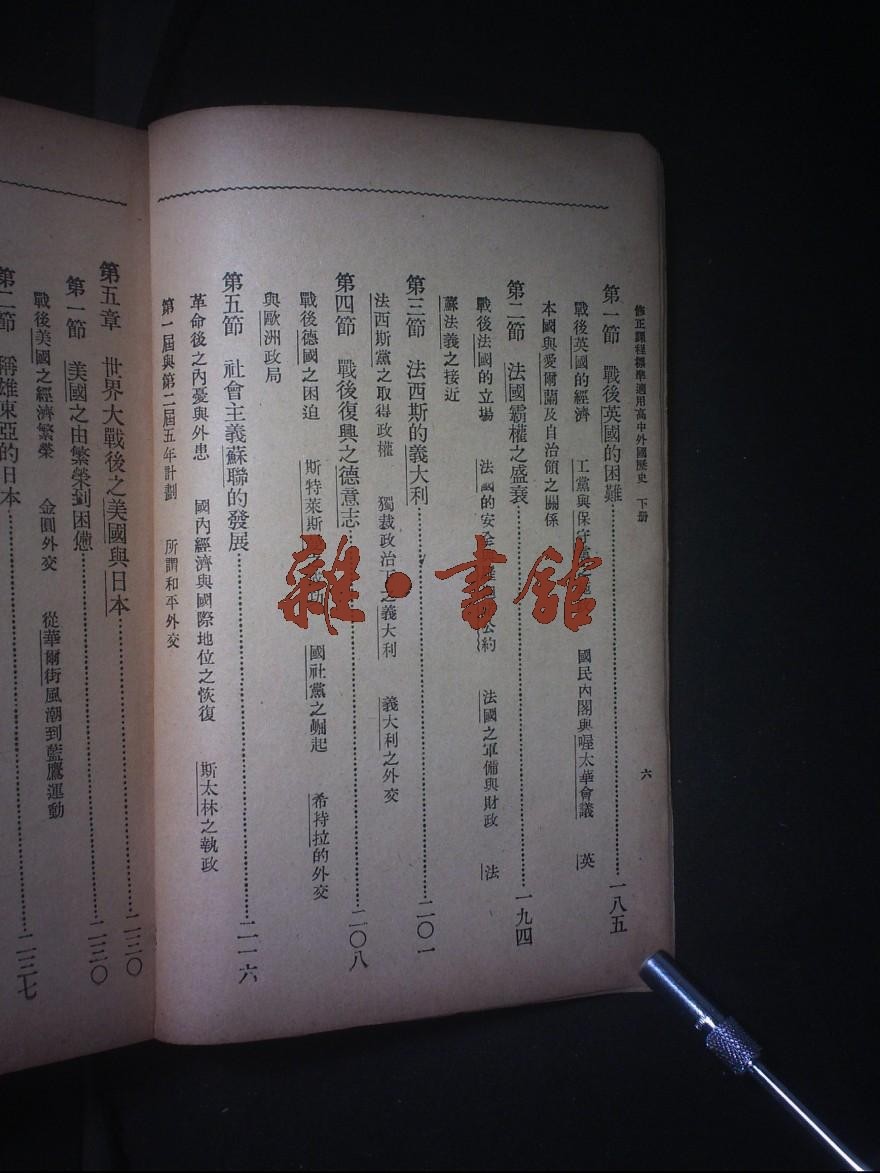 修正課程標準適用高中外國歷史　下册
六
第一節　戰後英國的困難…………一八五
戰後英國的經濟　工黨與保守　國民內閣與喔太華會議　英
本國與愛爾蘭及自治領之關係
第二節　法國霸權之盛衰…………一九四
戰後法國的立場　法國的安全　公約　法國之軍備與財政　法
蘇法義之接近
第三節　法西斯的義大利…………二〇一
法西斯黨之取得政權　獨裁政治下之義大利　義大利之外交
第四節　戰後復興之德意志…………二〇八
戰後德國之困迫　斯特萊斯　國社黨之崛起　希特拉的外交
與歐洲政局
第五節　社會主義蘇聯的發展…………二一六
革命後之內憂與外患　國內經濟與國際地位之恢復　斯太林之執政
第一屆與第二屆五年計劃　所謂和平外交
第五章　世界大戰後之美國與日本…………二三〇
第一節　美國之由繁榮到困憊…………二三〇
戰後美國之經濟繁榮　金圓外交　從華爾街風潮到藍鷹運動
第二節　稱雄東亞的日本…………二三七
雜·書館